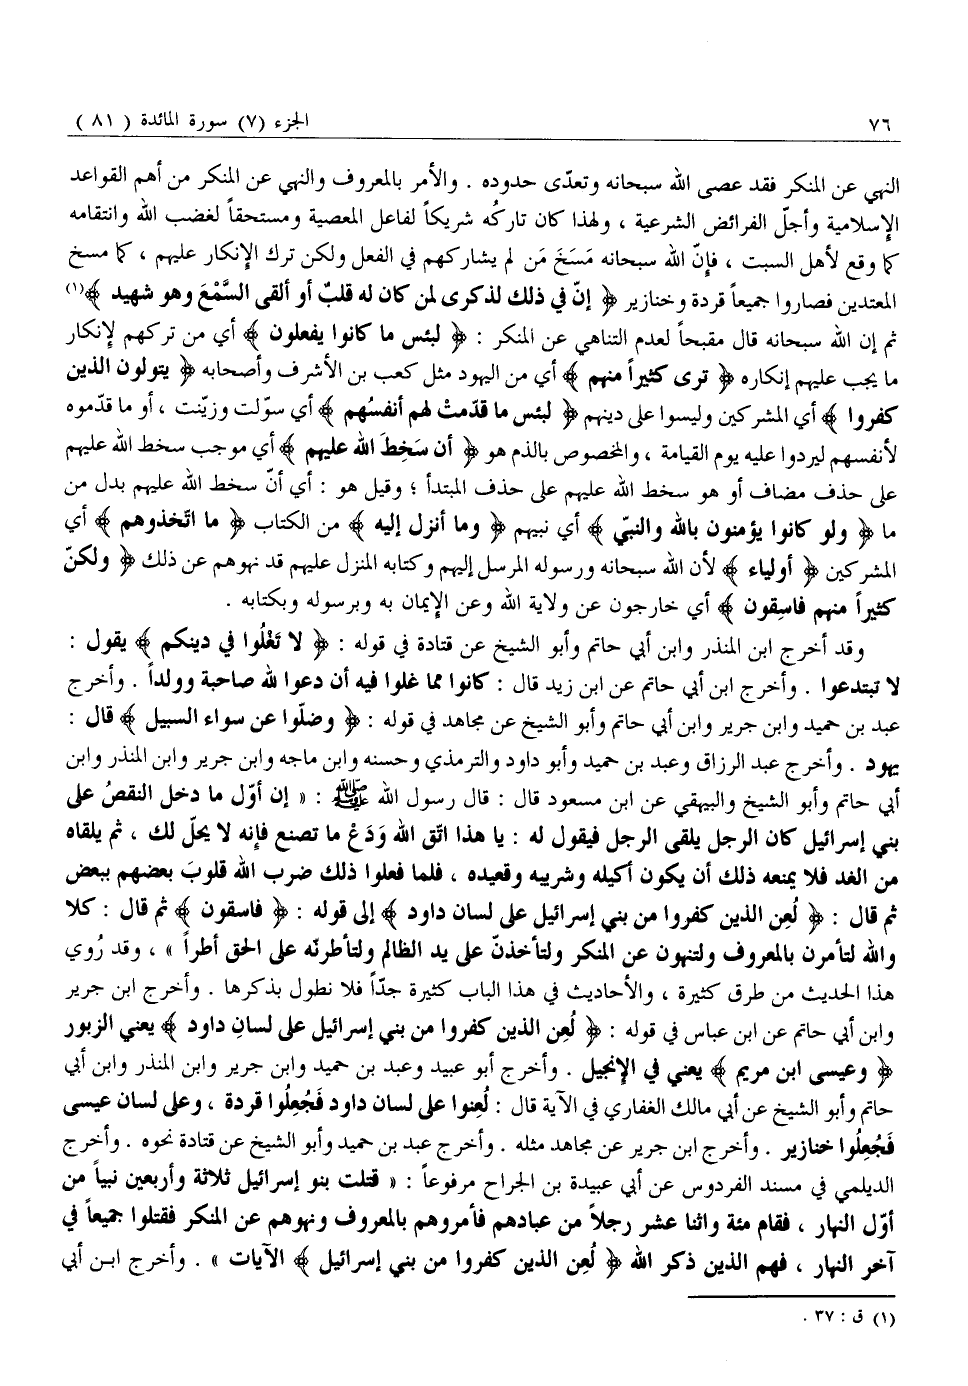 ٧٦
الجزء (٧) سورة المائدة ( ٨١ )
النهي عن المنكر فقد عصى الله سبحانه وتعدّى حدوده . والأمر بالمعروف والنهي عن المنكر من أهم القواعد
الإسلامية وأجلّ الفرائض الشرعية ، ولهذا كان تاركُه شريكاً لفاعل المعصية ومستحقاً لغضب الله وانتقامه
كما وقع لأهل السبت ، فإنّ الله سبحانه مَسَخَ مَن لم يشاركهم في الفعل ولكن ترك الإنكار عليهم ، كما مسخ
المعتدين فصاروا جميعاً قردة وخنازير ﴿ إنّ في ذلك لذكرى لمن كان له قلبٌ أو ألقى السَّمْعَ وهو شهيد ﴾(١)
ثم إن الله سبحانه قال مقبحاً لعدم التناهي عن المنكر : ﴿ لبئس ما كانوا يفعلون ﴾ أي من تركهم لإنكار
ما يجب عليهم إنكاره ﴿ ترى كثيراً منهم ﴾ أي من اليهود مثل كعب بن الأشرف وأصحابه ﴿ يتولون الذين
كفروا ﴾ أي المشركين وليسوا على دينهم ﴿ لبئس ما قدّمتْ لهم أنفسُهم ﴾ أي سوّلت وزيّنت ، أو ما قدّموه
لأنفسهم ليردوا عليه يوم القيامة ، والمخصوص بالذم هو ﴿ أن سَخِطَ الله عليهم ﴾ أي موجب سخط الله عليهم
على حذف مضاف أو هو سخط الله عليهم على حذف المبتدأ ؛ وقيل هو : أي أنّ سخط الله عليهم بدل من
ما ﴿ ولو كانوا يؤمنون بالله والنبيّ ﴾ أي نبيهم ﴿ وما أنزل إليه ﴾ من الكتاب ﴿ ما اتّخذوهم ﴾ أي
المشركين ﴿ أولياء ﴾ لأن الله سبحانه ورسوله المرسل إليهم وكتابه المنزل عليهم قد نهوهم عن ذلك ﴿ ولكنّ
كثيراً منهم فاسِقون ﴾ أي خارجون عن ولاية الله وعن الإيمان به وبرسوله وبكتابه .
وقد أخرج ابن المنذر وابن أبي حاتم وأبو الشيخ عن قتادة في قوله : ﴿ لا تَغْلُوا في دينكم ﴾ يقول :
لا تبتدعوا . وأخرج ابن أبي حاتم عن ابن زيد قال : كانوا مما غلوا فيه أن دعوا لله صاحبة وولداً . وأخرج
عبد بن حميد وابن جرير وابن أبي حاتم وأبو الشيخ عن مجاهد في قوله : ﴿ وضلّوا عن سواء السبيل ﴾ قال :
يهود . وأخرج عبد الرزاق وعبد بن حميد وأبو داود والترمذي وحسنه وابن ماجه وابن جرير وابن المنذر وابن
أبي حاتم وأبو الشيخ والبيهقي عن ابن مسعود قال : قال رسول الله ﷺ : « إن أوّل ما دخل النقصُ على
بني إسرائيل كان الرجل يلقى الرجل فيقول له : يا هذا اتّق الله وَدَعْ ما تصنع فإنه لا يحلّ لك ، ثم يلقاه
من الغد فلا يمنعه ذلك أن يكون أكيله وشريبه وقعيده ، فلما فعلوا ذلك ضرب الله قلوبَ بعضهم ببعض
ثم قال : ﴿ لُعِن الذين كفروا من بني إسرائيل على لسان داود ﴾ إلى قوله : ﴿ فاسقون ﴾ ثم قال : كلا
والله لتأمرن بالمعروف ولتنهون عن المنكر ولتأخذنّ على يد الظالم ولتأطرنّه على الحق أطراً » ، وقد رُوي
هذا الحديث من طرق كثيرة ، والأحاديث في هذا الباب كثيرة جدّاً فلا نطول بذكرها . وأخرج ابن جرير
وابن أبي حاتم عن ابن عباس في قوله : ﴿ لُعِن الذين كفروا من بني إسرائيل على لسانِ داود ﴾ يعني الزبور
﴿ وعيسى ابن مريم ﴾ يعني في الإنجيل . وأخرج أبو عبيد وعبد بن حميد وابن جرير وابن المنذر وابن أبي
حاتم وأبو الشيخ عن أبي مالك الغفاري في الآية قال : لُعِنوا على لسان داود فَجُعِلُوا قردة ، وعلى لسان عيسى
فَجُعِلُوا خنازير . وأخرج ابن جرير عن مجاهد مثله . وأخرج عبد بن حميد وأبو الشيخ عن قتادة نحوه . وأخرج
الديلمي في مسند الفردوس عن أبي عبيدة بن الجراح مرفوعاً : « قتلت بنو إسرائيل ثلاثة وأربعين نبياً من
أوّل النهار ، فقام مئة واثنا عشر رجلاً من عبادهم فأمروهم بالمعروف ونهوهم عن المنكر فقتلوا جميعاً في
آخر النهار ، فهم الذين ذكر الله ﴿ لُعِن الذين كفروا من بني إسرائيل ﴾ الآيات » . وأخرج ابن أبي
(١) ق : ٣٧ .